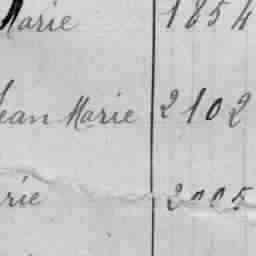 Marie 1854
ean Marie 2102
rie 2005